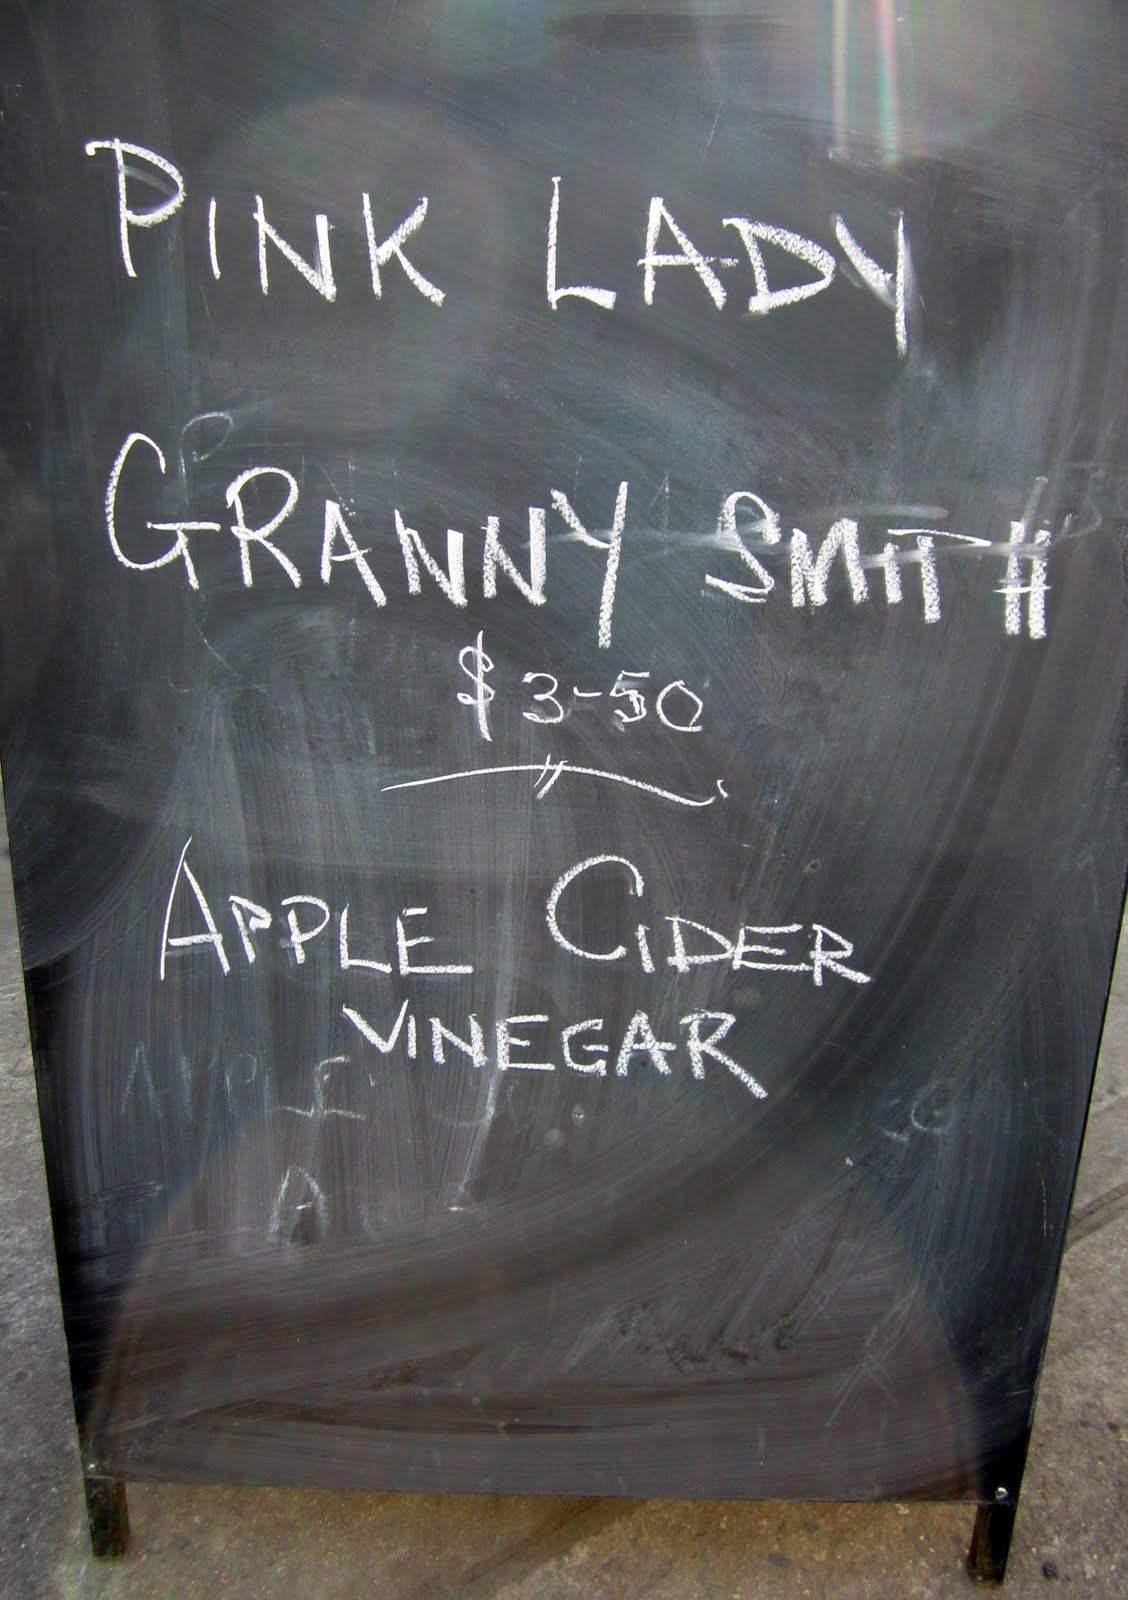 PINK LADY
GRANNY SMITH
$3-50
APPLE CIDER
VINEGAR